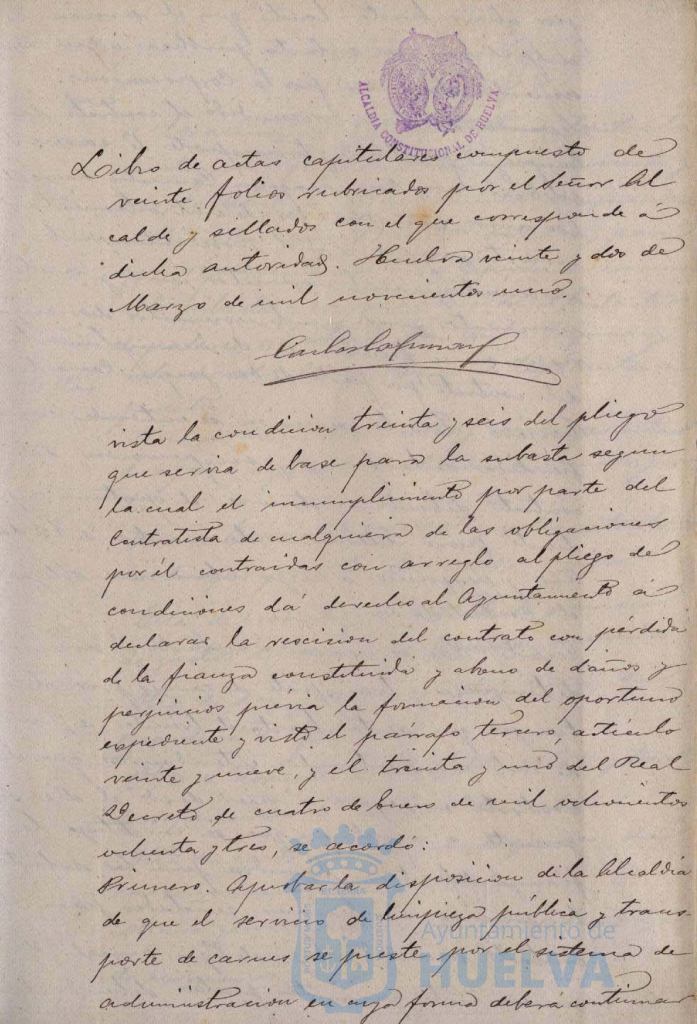 ALCALDIA CONSTITUCIONAL DE HUELVA
Libro de actas capitulares compuesto de
veinte folios rubricados por el Señor Al
calde y sellados con el que corresponde á
dicha autoridad. Huelva veinte y dos de
Marzo de mil novecientos uno.
vista la condicion treinta y seis del pliego
que servia de base para la subasta segun
la cual el incumplimiento por parte del
Contratista de cualquiera de las obligaciones
por él contraidas con arreglo al pliego de
condiciones dá derecho al Ayuntamiento á
declarar la rescision del contrato con pérdida
de la fianza constituida y abono de daños y
perjuicios prévia la formacion del oportuno
expediente y visto el párrafo tercero, artículo
veinte y nueve, y el treinta y uno del Real
Decreto de cuatro de Enero de mil ochocientos
ochenta y tres, se acordó:
Primero. Aprobar la disposicion de la Alcaldía
de que el servicio de limpieza pública y trans-
porte de carnes se preste por el sistema de
administracion en cuya forma deberá continuar
Ayuntamiento de
HUELVA